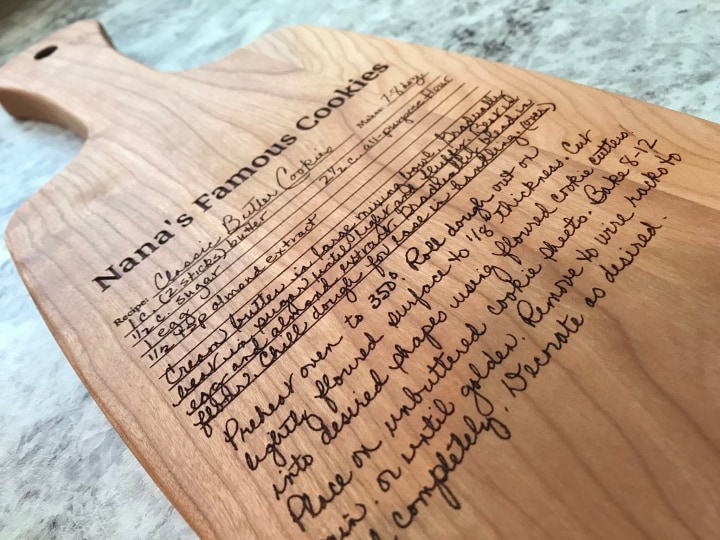 Nana's Famous Cookies
Recipe: Classic Butter Cookies Makes: 7-8 doz.
1 c. (2 sticks) butter 2 1/2 c. all-purpose flour
1/2 c. sugar
1 egg
1/2 tsp almond extract
Cream butter in large mixing bowl. Gradually
beat in sugar until light and fluffy. Beat in
egg and almond extract. Gradually blend in
flour. Chill dough for ease in handling
Preheat oven to 350°. Roll dough out on
lightly floured surface to 1/8 thickness. Cut
into desired shapes using floured cookie cutters.
Place on unbuttered cookie sheets. Bake 8-12
min. or until golden. Remove to wire racks to
completely. Decorate as desired.